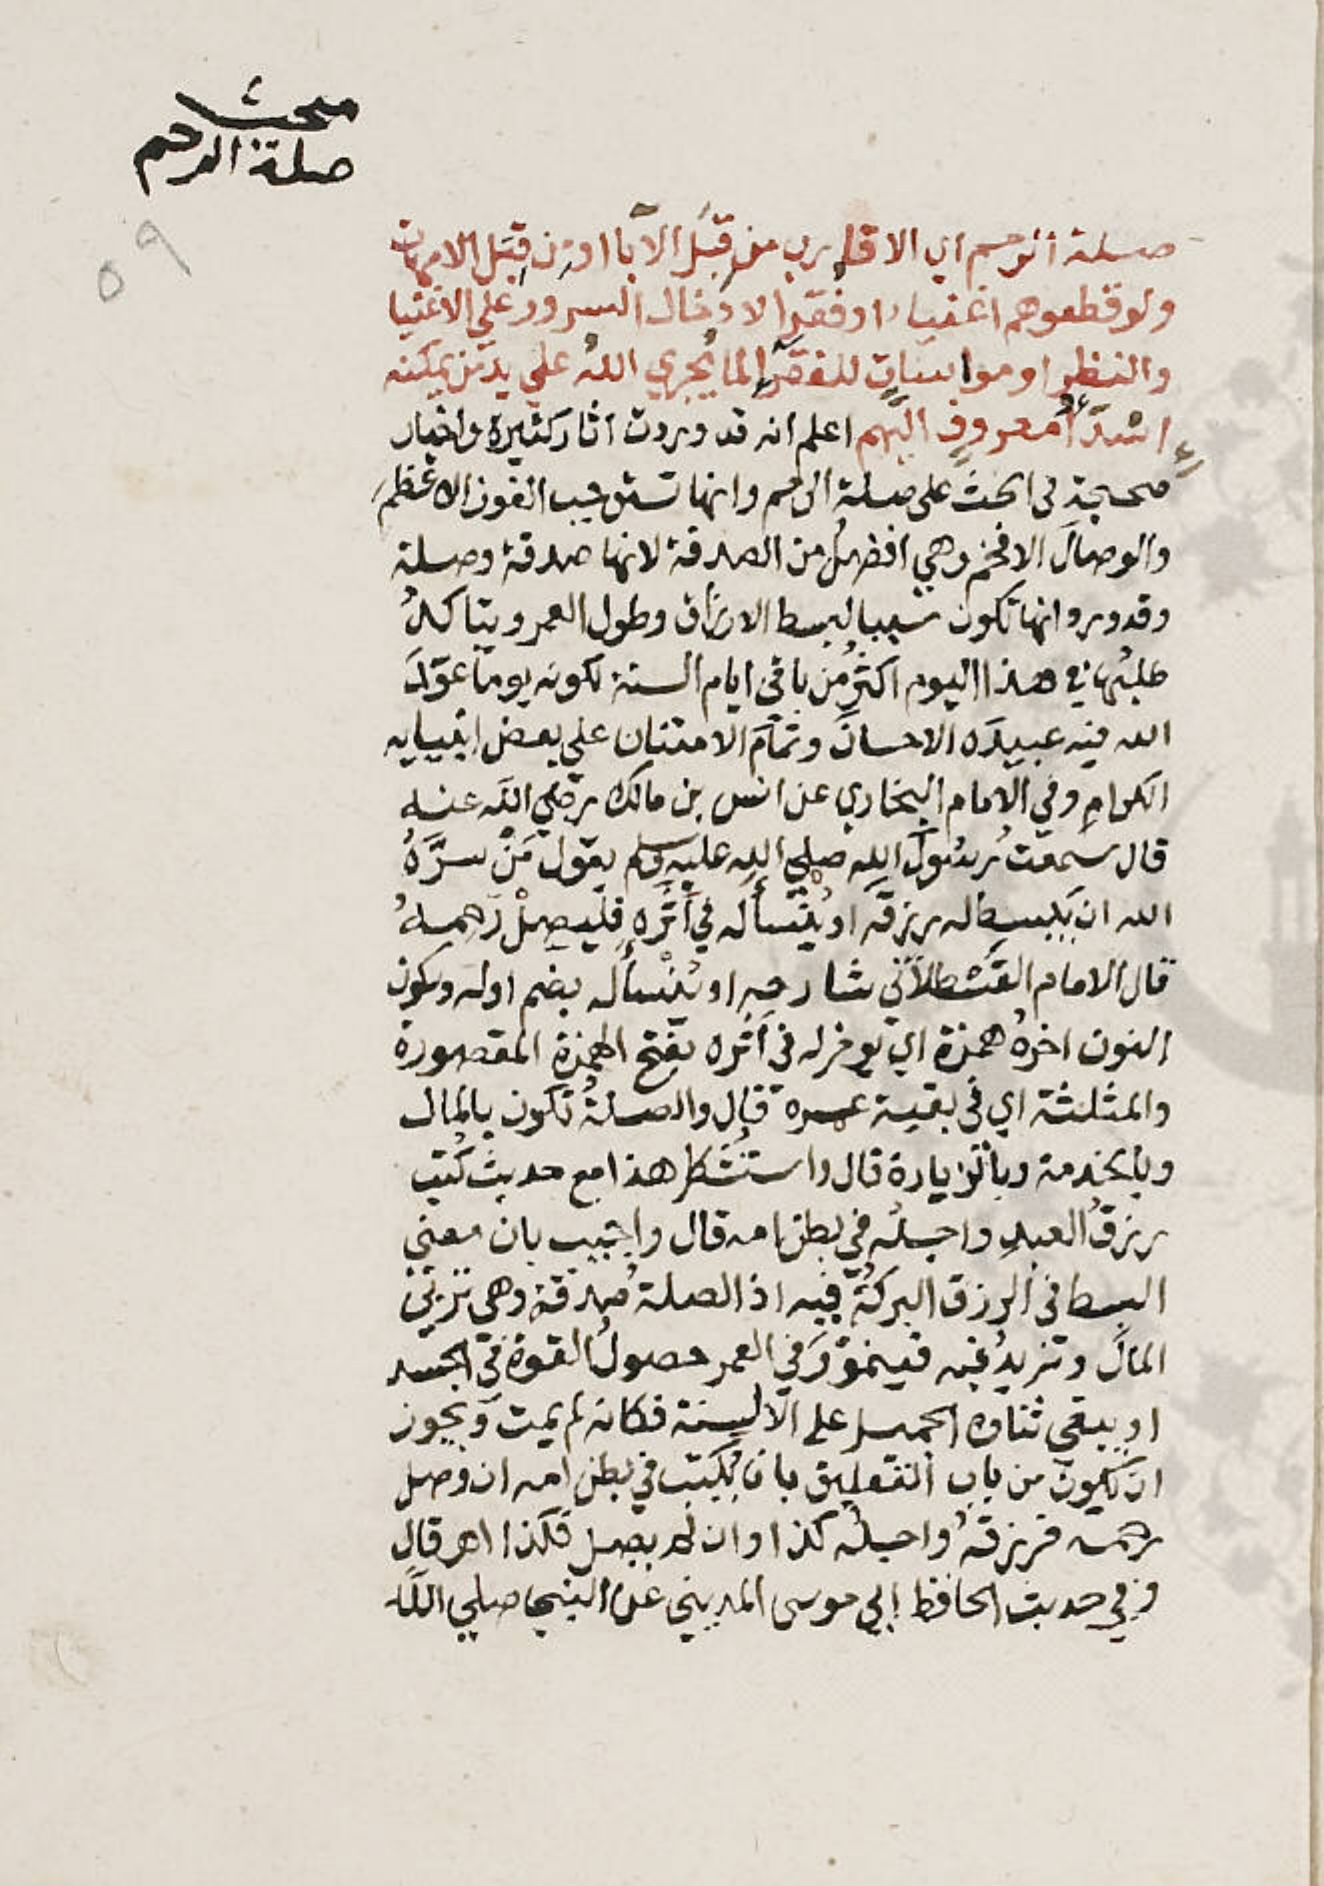 مبحث
صلة الرحم
٥٩
صلة الرحم اي الاقارب من قِبَل الآبا او من قِبَل الامهات
ولو قطعوهم اغنياء او فقرا لادخال السرور علي الاغنيا
والنظر او مواسات للفقرا لما يُجري اللهُ علي يد من يمكنه
اسداءُ معروفٍ اليهم اعلم انه قد وردت اثار كثيرة واخبار
صحيحة في الحث على صلة الرحم وانها تستوجب الفوز الاعظم
والوصال الافخم وهي افضل من الصدقة لانها صدقة وصلة
وقد ورد انها تكون سببا لبسط الارزاق وطول العمر ويتاكد
طلبها في هذا اليوم اكثر من باقي ايام السنة لكونه يوما عوّد
الله فيه عبيده الاحسان وتمام الامتنان علي بعض انبيايه
الكرام وفي الامام البخاري عن انس بن مالك رضي الله عنه
قال سمعت رسول الله صلي الله عليه وسلم يقول مَنْ سرَّهُ
الله ان يبسط له رزقه او يُنْسأ له في أثَرِهِ فليصِلْ رحمهُ
قال الامام القسطلاني شارحه او يُنْسأ له بضم اوله وسكون
النون اخرهُ همزة اي يوخر له في أثره بفتح الهمزة المقصورة
والمثلثة اي في بقية عمره قال والصلةُ تكون بالمال
وبالخدمة وبالزيارة قال واستُشكل هذا مع حديث كُتب
رزقُ العبدِ واجلُه في بطن امه قال واجيب بان معني
البسط في الرزق البركةُ فيه اذ الصلة صدقة وهي تربي
المالَ وتزيدُ فيه فينمو وَفي العمر حصولُ القوة في الجسد
او يبقي ثناوه الجميل علي الالسنة فكانه لم يمت ويجوز
ان يكون من باب التعليق بان يُكتب في بطن امه ان وصل
رحمه فرزقهُ واجلُه كذا وان لم يصل فكذا اهـ قال
وفي حديث الحافظ ابي موسى المديني عن النبي صلي الله